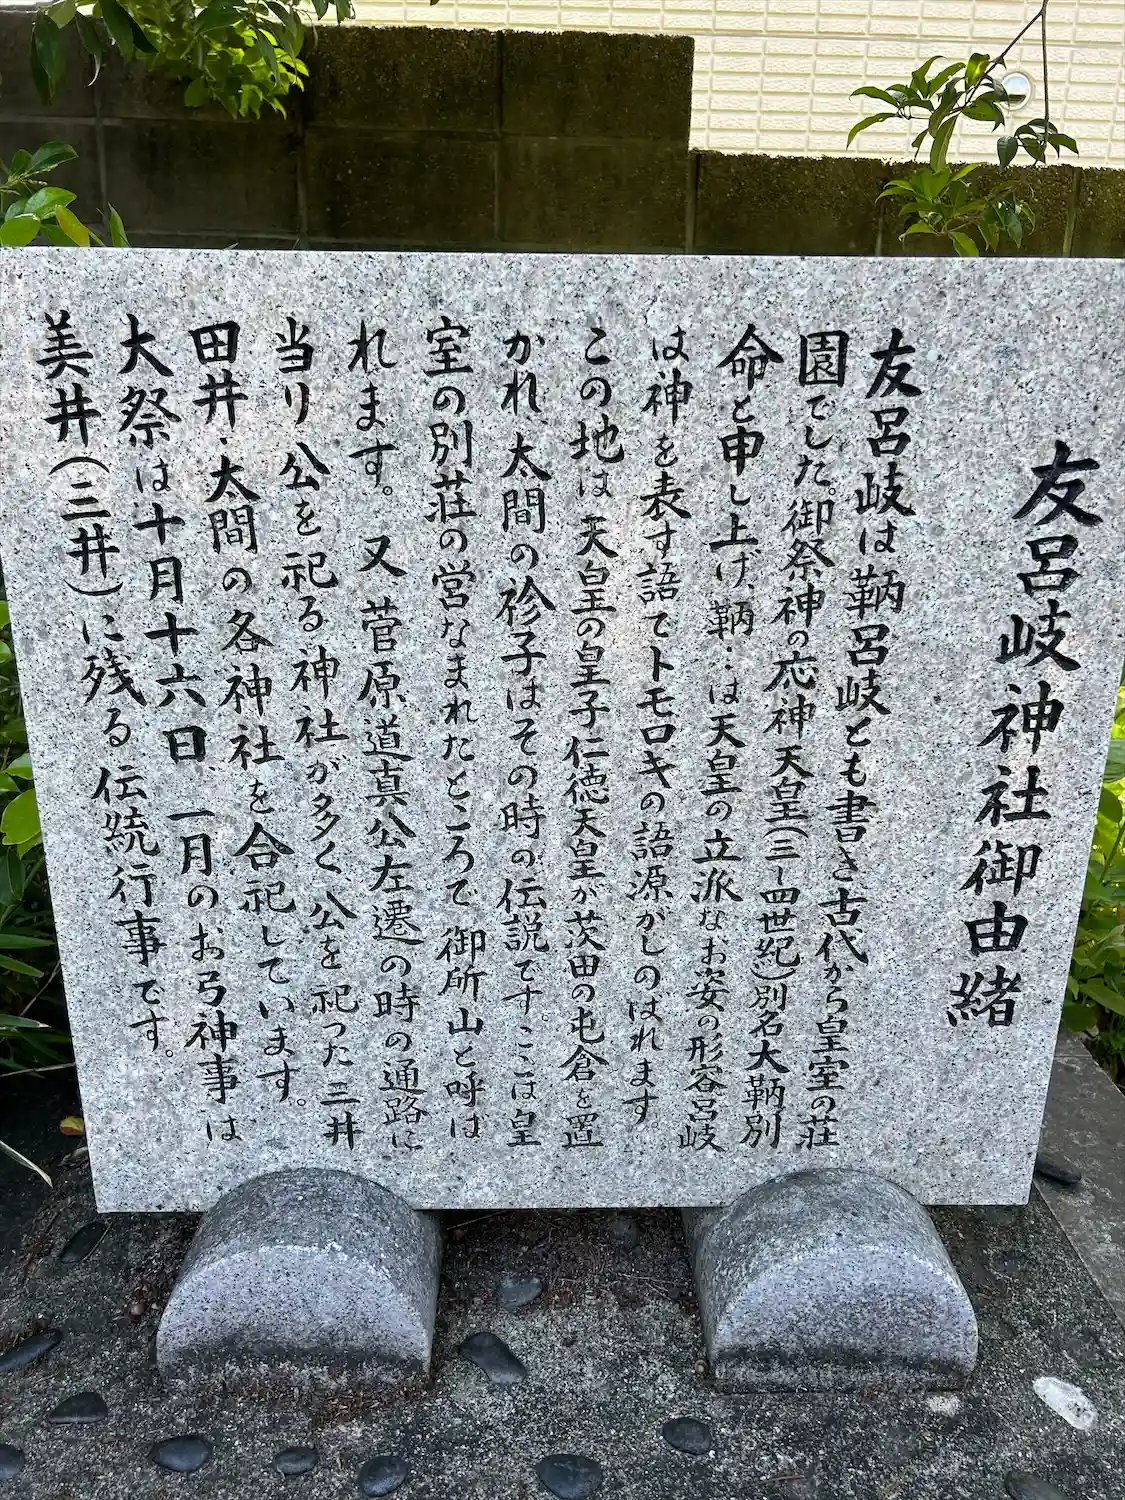 友呂岐神社御由緒
友呂岐は鞆呂岐とも書き古代から皇室の荘
園でした。御祭神の応神天皇(三〜四世紀)別名大鞆別
命と申し上げ、鞆‥は天皇の立派なお姿の形容呂岐
は神を表す語でトモロキの語源がしのばれます。
この地は天皇の皇子仁徳天皇が茨田の屯倉を置
かれ、太間の袗子はその時の伝説です。ここは皇
室の別荘の営なまれたところで御所山と呼ば
れます。又菅原道真公左遷の時の通路に
当り公を祀る神社が多く公を祀った三井
田井・太間の各神社を合祀しています。
大祭は十月十六日、一月のお弓神事は
美井(三井)に残る伝統行事です。